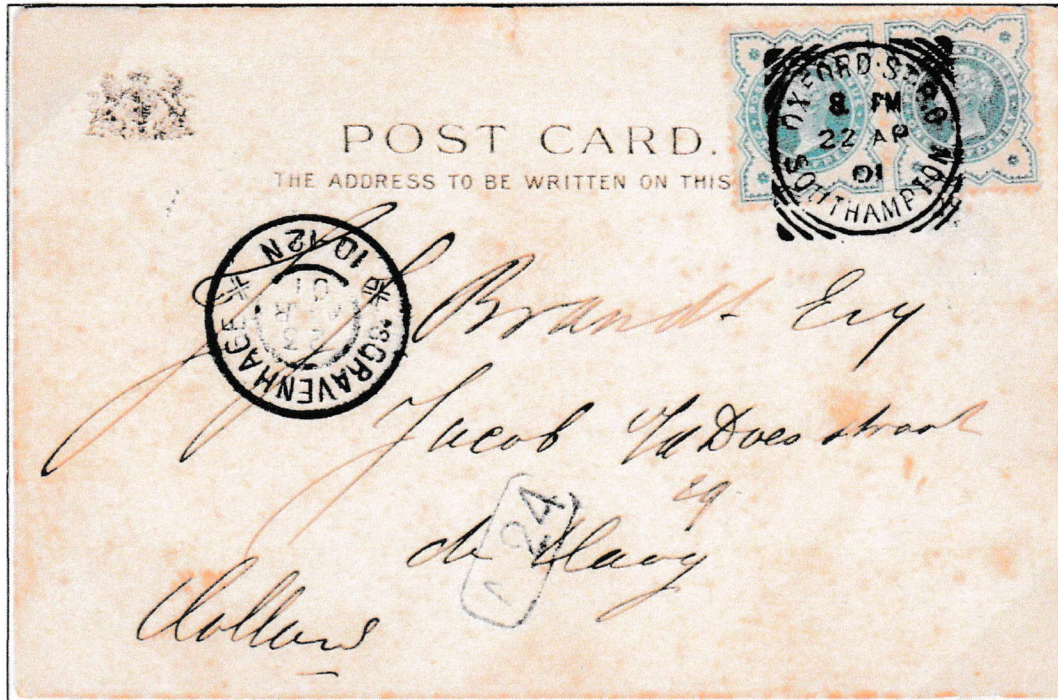 POST CARD.
THE ADDRESS TO BE WRITTEN ON THIS
OXFORD·ST.B.O
8 PM
22 AP
01
SOUTHAMPTON
'SGRAVENHAGE
10-12N
23
APR
01
Brandt Esq
Jacob v/d Does straat
29
de Haag
Holland
24